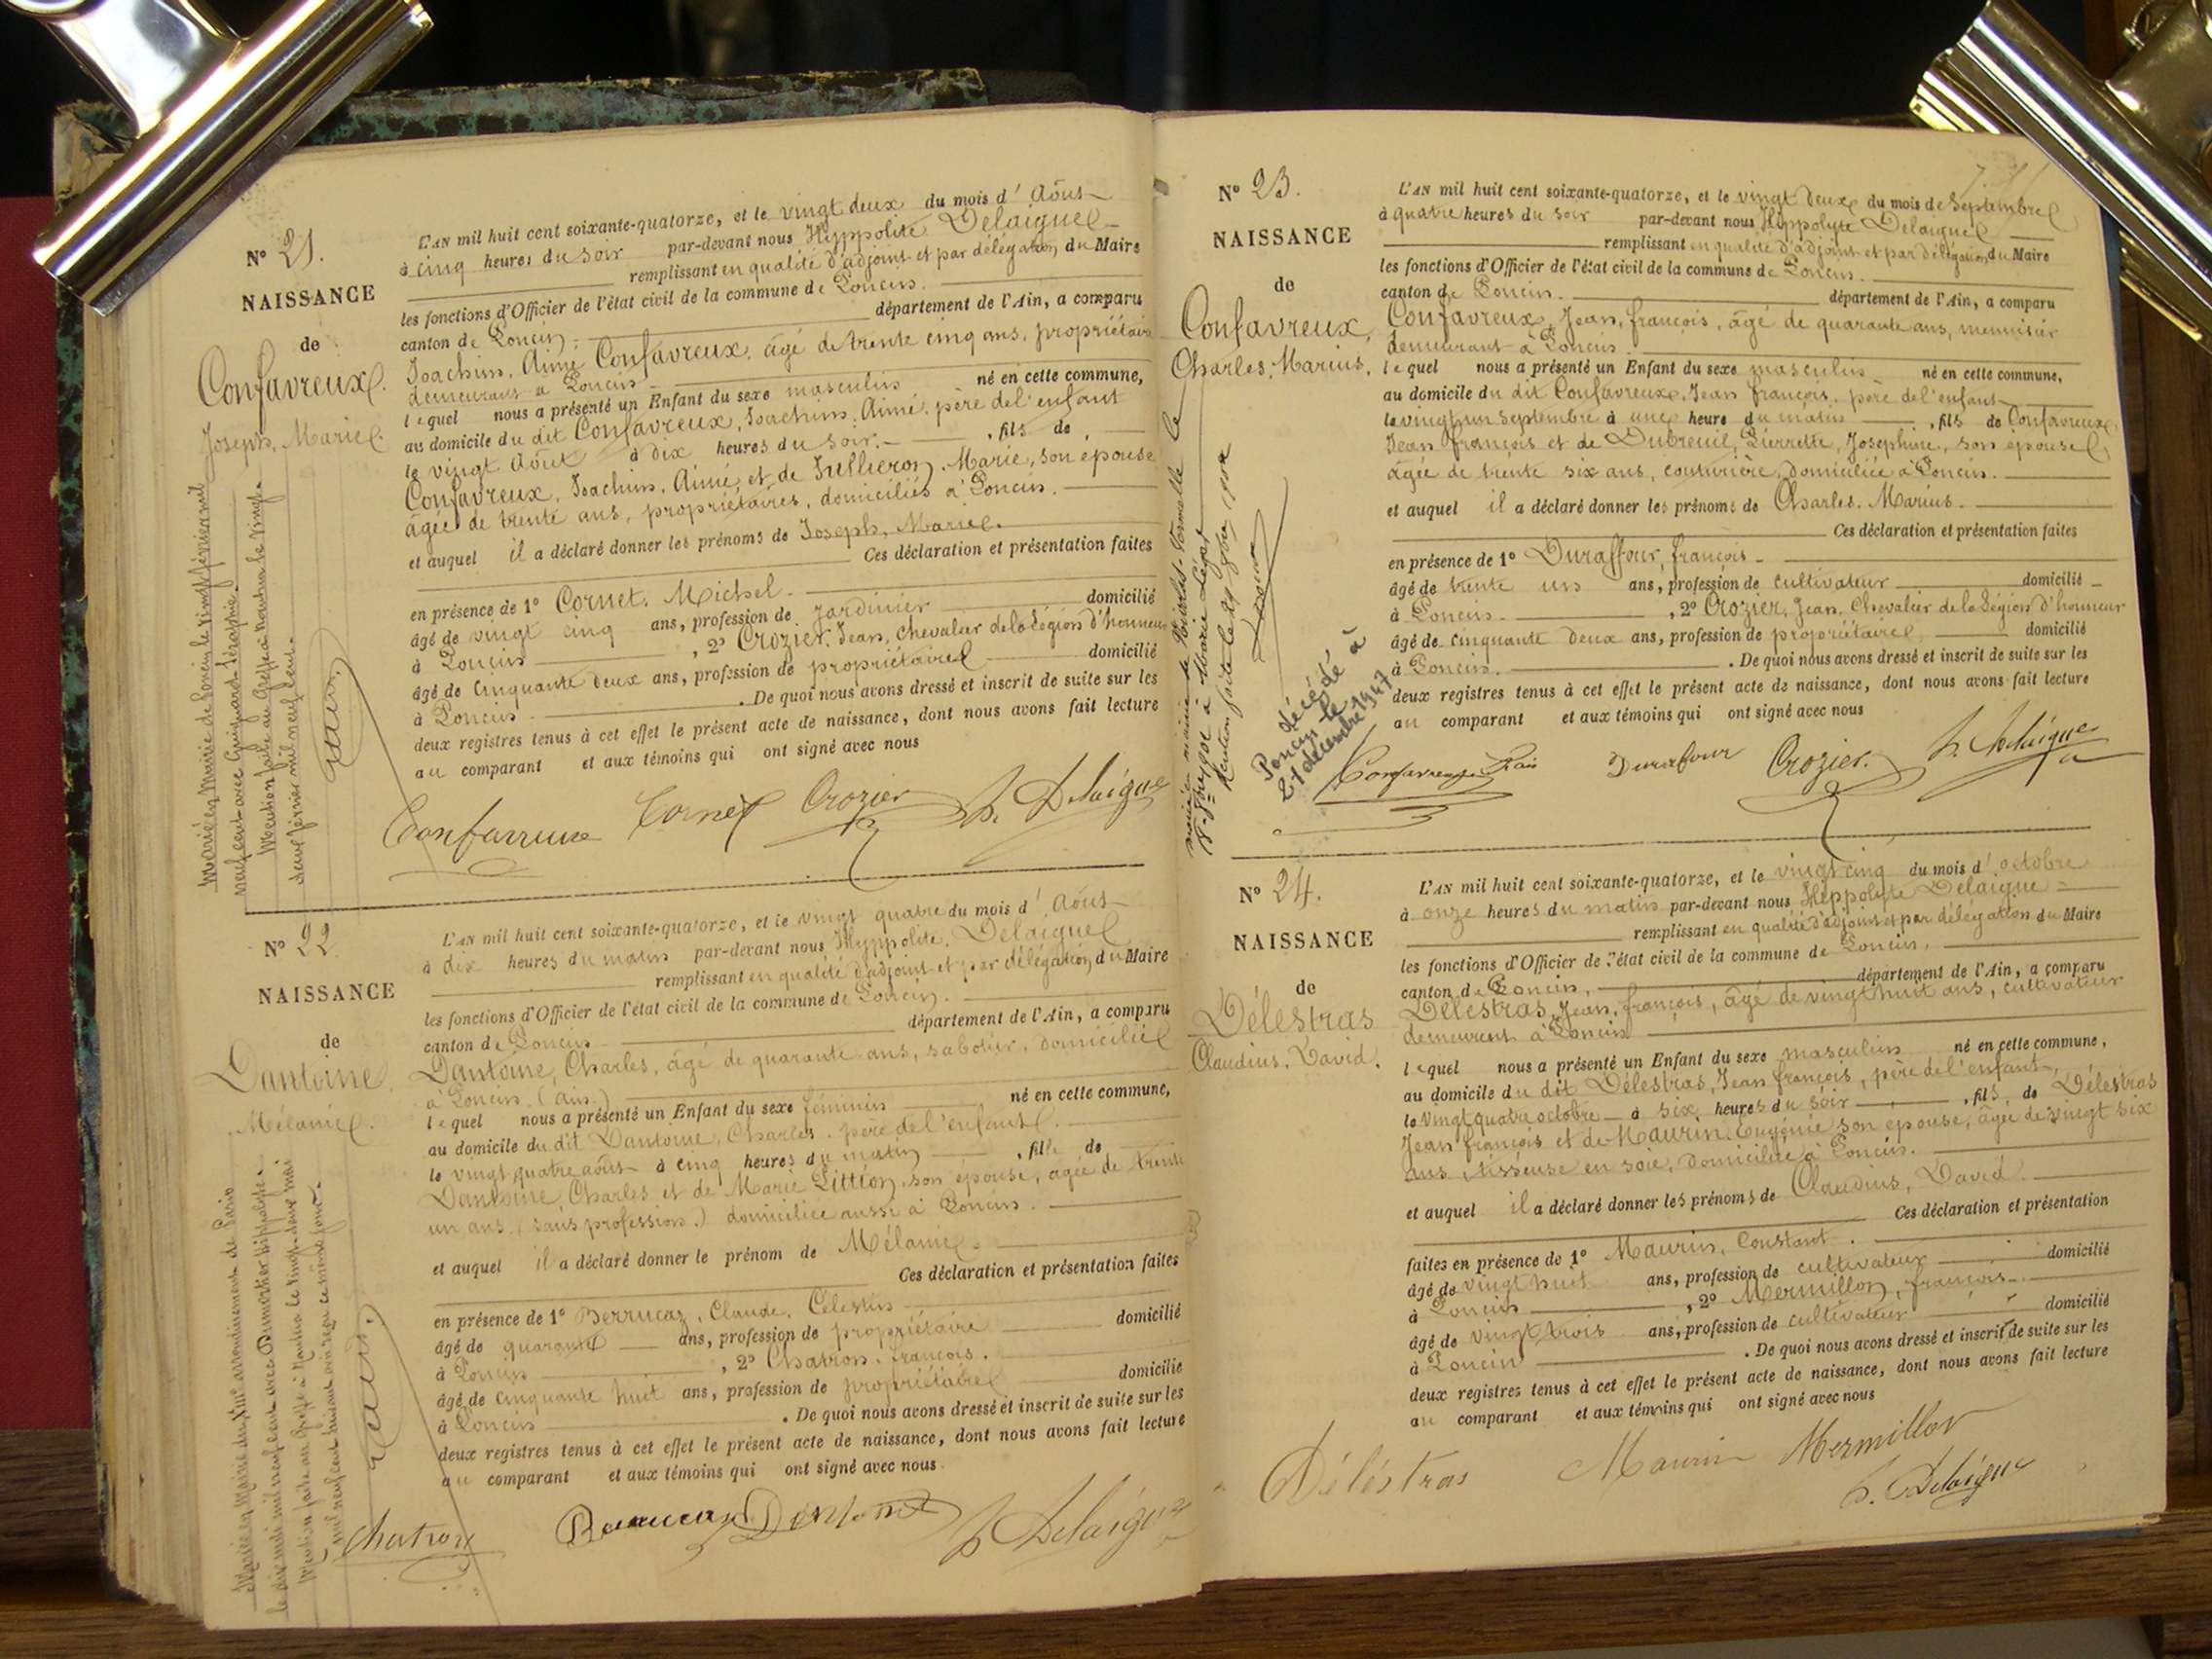 N° 21.
NAISSANCE
de
Confavreux.
Joseph, Marie.
L'AN mil huit cent soixante-quatorze, et le vingt deux du mois d'Août
à cinq heures du soir par-devant nous Hyppolite Delaigue
remplissant en qualité d'adjoint et par délégation du Maire
les fonctions d'Officier de l'état civil de la commune de Poncin.
canton de Poncin. département de l'Ain, a comparu
Joachim, Aimé Confavreux, âgé de trente cinq ans, propriétaire
demeurant à Poncin
lequel nous a présenté un Enfant du sexe masculin né en cette commune,
au domicile du dit Confavreux, Joachim, Aimé, père de l'enfant
le vingt Août à dix heures du soir. , fils de
Confavreux, Joachim, Aimé, et de Jullieron, Marie, son épouse
âgée de trente ans, propriétaires, domiciliés à Poncin.
et auquel il a déclaré donner les prénoms de Joseph, Marie.
Ces déclaration et présentation faites
en présence de 1° Cornet, Michel
âgé de vingt cinq ans, profession de jardinier domicilié
à Poncin , 2° Crozier, Jean, chevalier de la Légion d'honneur
âgé de cinquante deux ans, profession de propriétaire domicilié
à Poncin . De quoi nous avons dressé et inscrit de suite sur les
deux registres tenus à cet effet le présent acte de naissance, dont nous avons fait lecture
au comparant et aux témoins qui ont signé avec nous
Confavreux Cornet Crozier h. Delaigue
Marié en Mairie de Poncin le vingt février mil
neuf cent avec Guignard Séraphie.
Mention faite au Greffe à Nantua le vingt
deux février mil neuf cent.
N° 22
NAISSANCE
de
Dantoine.
Mélanie.
L'AN mil huit cent soixante-quatorze, et le vingt quatre du mois d'Août
à dix heures du matin par-devant nous Hyppolite, Delaigue
remplissant en qualité d'adjoint et par délégation du Maire
les fonctions d'Officier de l'état civil de la commune de Poncin.
canton de Poncin département de l'Ain, a comparu
Dantoine, Charles, âgé de quarante ans, sabotier, domicilié
à Poncin (ain.)
lequel nous a présenté un Enfant du sexe féminin né en cette commune,
au domicile du dit Dantoine, Charles, père de l'enfant.
le vingt quatre août à cinq heures du matin , fille de
Dantoine Charles et de Marie Littion, son épouse, âgée de trente
un ans, (sans profession.) domiciliée aussi à Poncin.
et auquel il a déclaré donner le prénom de Mélanie
Ces déclaration et présentation faites
en présence de 1° Berrucaz, Claude, Célestin
âgé de quarante ans, profession de propriétaire domicilié
à Poncin , 2° Chatron, françois.
âgé de cinquante huit ans, profession de propriétaire domicilié
à Poncin . De quoi nous avons dressé et inscrit de suite sur les
deux registres tenus à cet effet le présent acte de naissance, dont nous avons fait lecture
au comparant et aux témoins qui ont signé avec nous
Chatron Berrucaz Dantoine h Delaigue
Mariée en Mairie du XIIIe arrondissement de Paris
le dix mai mil neuf cent avec
Mention faite au Greffe à Nantua le vingt deux mai
mil neuf cent suivant avis reçu ce même jour.
N° 23.
NAISSANCE
de
Confavreux,
Charles, Marius.
L'AN mil huit cent soixante-quatorze, et le vingt deux du mois de Septembre
à quatre heures du soir par-devant nous Hyppolyte Delaigue
remplissant en qualité d'adjoint et par délégation du Maire
les fonctions d'Officier de l'état civil de la commune de Poncin.
canton de Poncin. département de l'Ain, a comparu
Confavreux, Jean, françois, âgé de quarante ans, menuisier
demeurant à Poncin.
lequel nous a présenté un Enfant du sexe masculin né en cette commune,
au domicile du dit Confavreux, Jean françois, père de l'enfant
le vingt un Septembre à une heure du matin , fils de Confavreux,
Jean françois et de Dubreuil, Pierrette, Joséphine, son épouse
âgée de trente six ans, couturière, domiciliée à Poncin.
et auquel il a déclaré donner les prénoms de Charles. Marius.
Ces déclaration et présentation faites
en présence de 1° Duraffour, françois
âgé de trente un ans, profession de cultivateur domicilié
à Poncin. , 2° Crozier, Jean, Chevalier de la Légion d'honneur
âgé de cinquante deux ans, profession de propriétaire domicilié
à Poncin. . De quoi nous avons dressé et inscrit de suite sur les
deux registres tenus à cet effet le présent acte de naissance, dont nous avons fait lecture
au comparant et aux témoins qui ont signé avec nous
Confavreux Duraffour Crozier. h. Delaigue
décédé à
Poncin le
21 décembre 1947
N° 24.
NAISSANCE
de
Délestras
Claudius, David.
L'AN mil huit cent soixante-quatorze, et le vingt cinq du mois d'octobre
à onze heures du matin par-devant nous Hippolyte Delaigue
remplissant en qualité d'adjoint et par délégation du Maire
les fonctions d'Officier de l'état civil de la commune de Poncin.
canton de Poncin, département de l'Ain, a comparu
Délestras, Jean, françois, âgé de vingt huit ans, cultivateur
demeurent à Poncin
lequel nous a présenté un Enfant du sexe masculin né en cette commune,
au domicile du dit Délestras, Jean françois, père de l'enfant,
le vingt quatre octobre à six heures du soir , fils, de Délestras
Jean françois et de Maurin, Eugénie son épouse, âgée de vingt six
ans, tisseuse en soie, domiciliée à Poncin.
et auquel il a déclaré donner les prénoms de Claudius, David.
Ces déclaration et présentation
faites en présence de 1° Maurin, Constant.
âgé de vingt huit ans, profession de cultivateur domicilié
à Poncin , 2° Mermillon, françois
âgé de vingt trois ans, profession de cultivateur domicilié
à Poncin . De quoi nous avons dressé et inscrit de suite sur les
deux registres tenus à cet effet le présent acte de naissance, dont nous avons fait lecture
au comparant et aux témoins qui ont signé avec nous
Délestras Maurin Mermillon
h. Delaigue